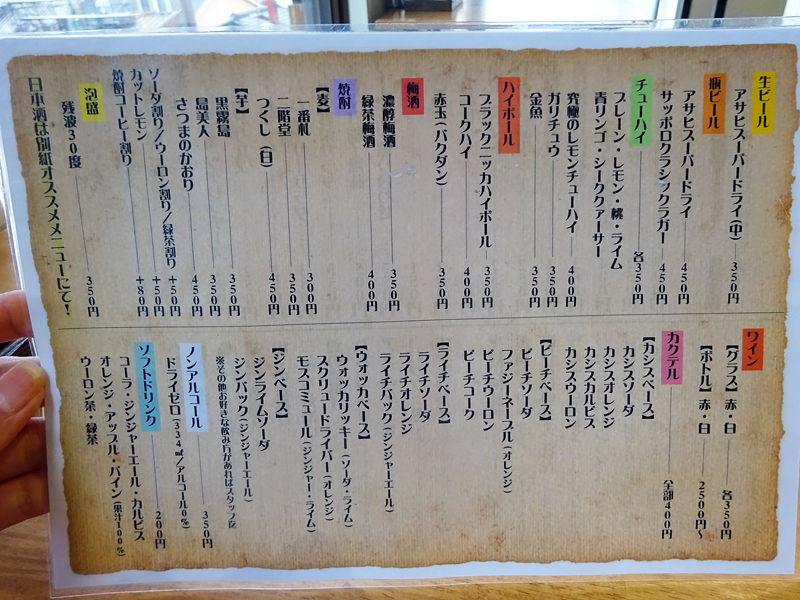 生ビール
アサヒスーパードライ(中) 350円
瓶ビール
アサヒスーパードライ 450円
サッポロクラシックラガー 450円
チューハイ 各350円
プレーン・レモン・桃・ライム
青リンゴ・シークァーサー
究極のレモンチューハイ 400円
ガリチュウ 350円
金魚 350円
ハイボール
ブラックニッカハイボール 350円
コークハイ 400円
赤玉(バクダン) 350円
梅酒
濃醇梅酒 350円
緑茶梅酒 400円
焼酎
【麦】
一番札 300円
二階堂 350円
つくし(白) 450円
【芋】
黒霧島 350円
島美人 350円
さつまのかおり 450円
ソーダ割り/ウーロン割り/緑茶割り +50円
カットレモン +50円
焼酎コーヒー割り +80円
泡盛
残波30度 350円
日本酒は別紙オススメメニューにて!
ワイン
【グラス】赤・白 各350円
【ボトル】赤・白 2500円〜
カクテル 全部400円
【カシスベース】
カシスソーダ
カシスオレンジ
カシスカルピス
カシスウーロン
【ピーチベース】
ピーチソーダ
ファジーネーブル(オレンジ)
ピーチウーロン
ピーチコーク
【ライチベース】
ライチソーダ
ライチオレンジ
ライチバック(ジンジャーエール)
【ウォッカベース】
ウォッカリッキー(ソーダ・ライム)
スクリュードライバー(オレンジ)
モスコミュール(ジンジャー・ライム)
【ジンベース】
ジンライムソーダ
ジンバック(ジンジャーエール)
※その他お好きな飲み方があればスタッフ迄
ノンアルコール
ドライゼロ(334㎖/アルコール0%) 350円
ソフトドリンク 200円
コーラ・ジンジャーエール・カルピス
オレンジ・アップル・パイン(果汁100%)
ウーロン茶・緑茶